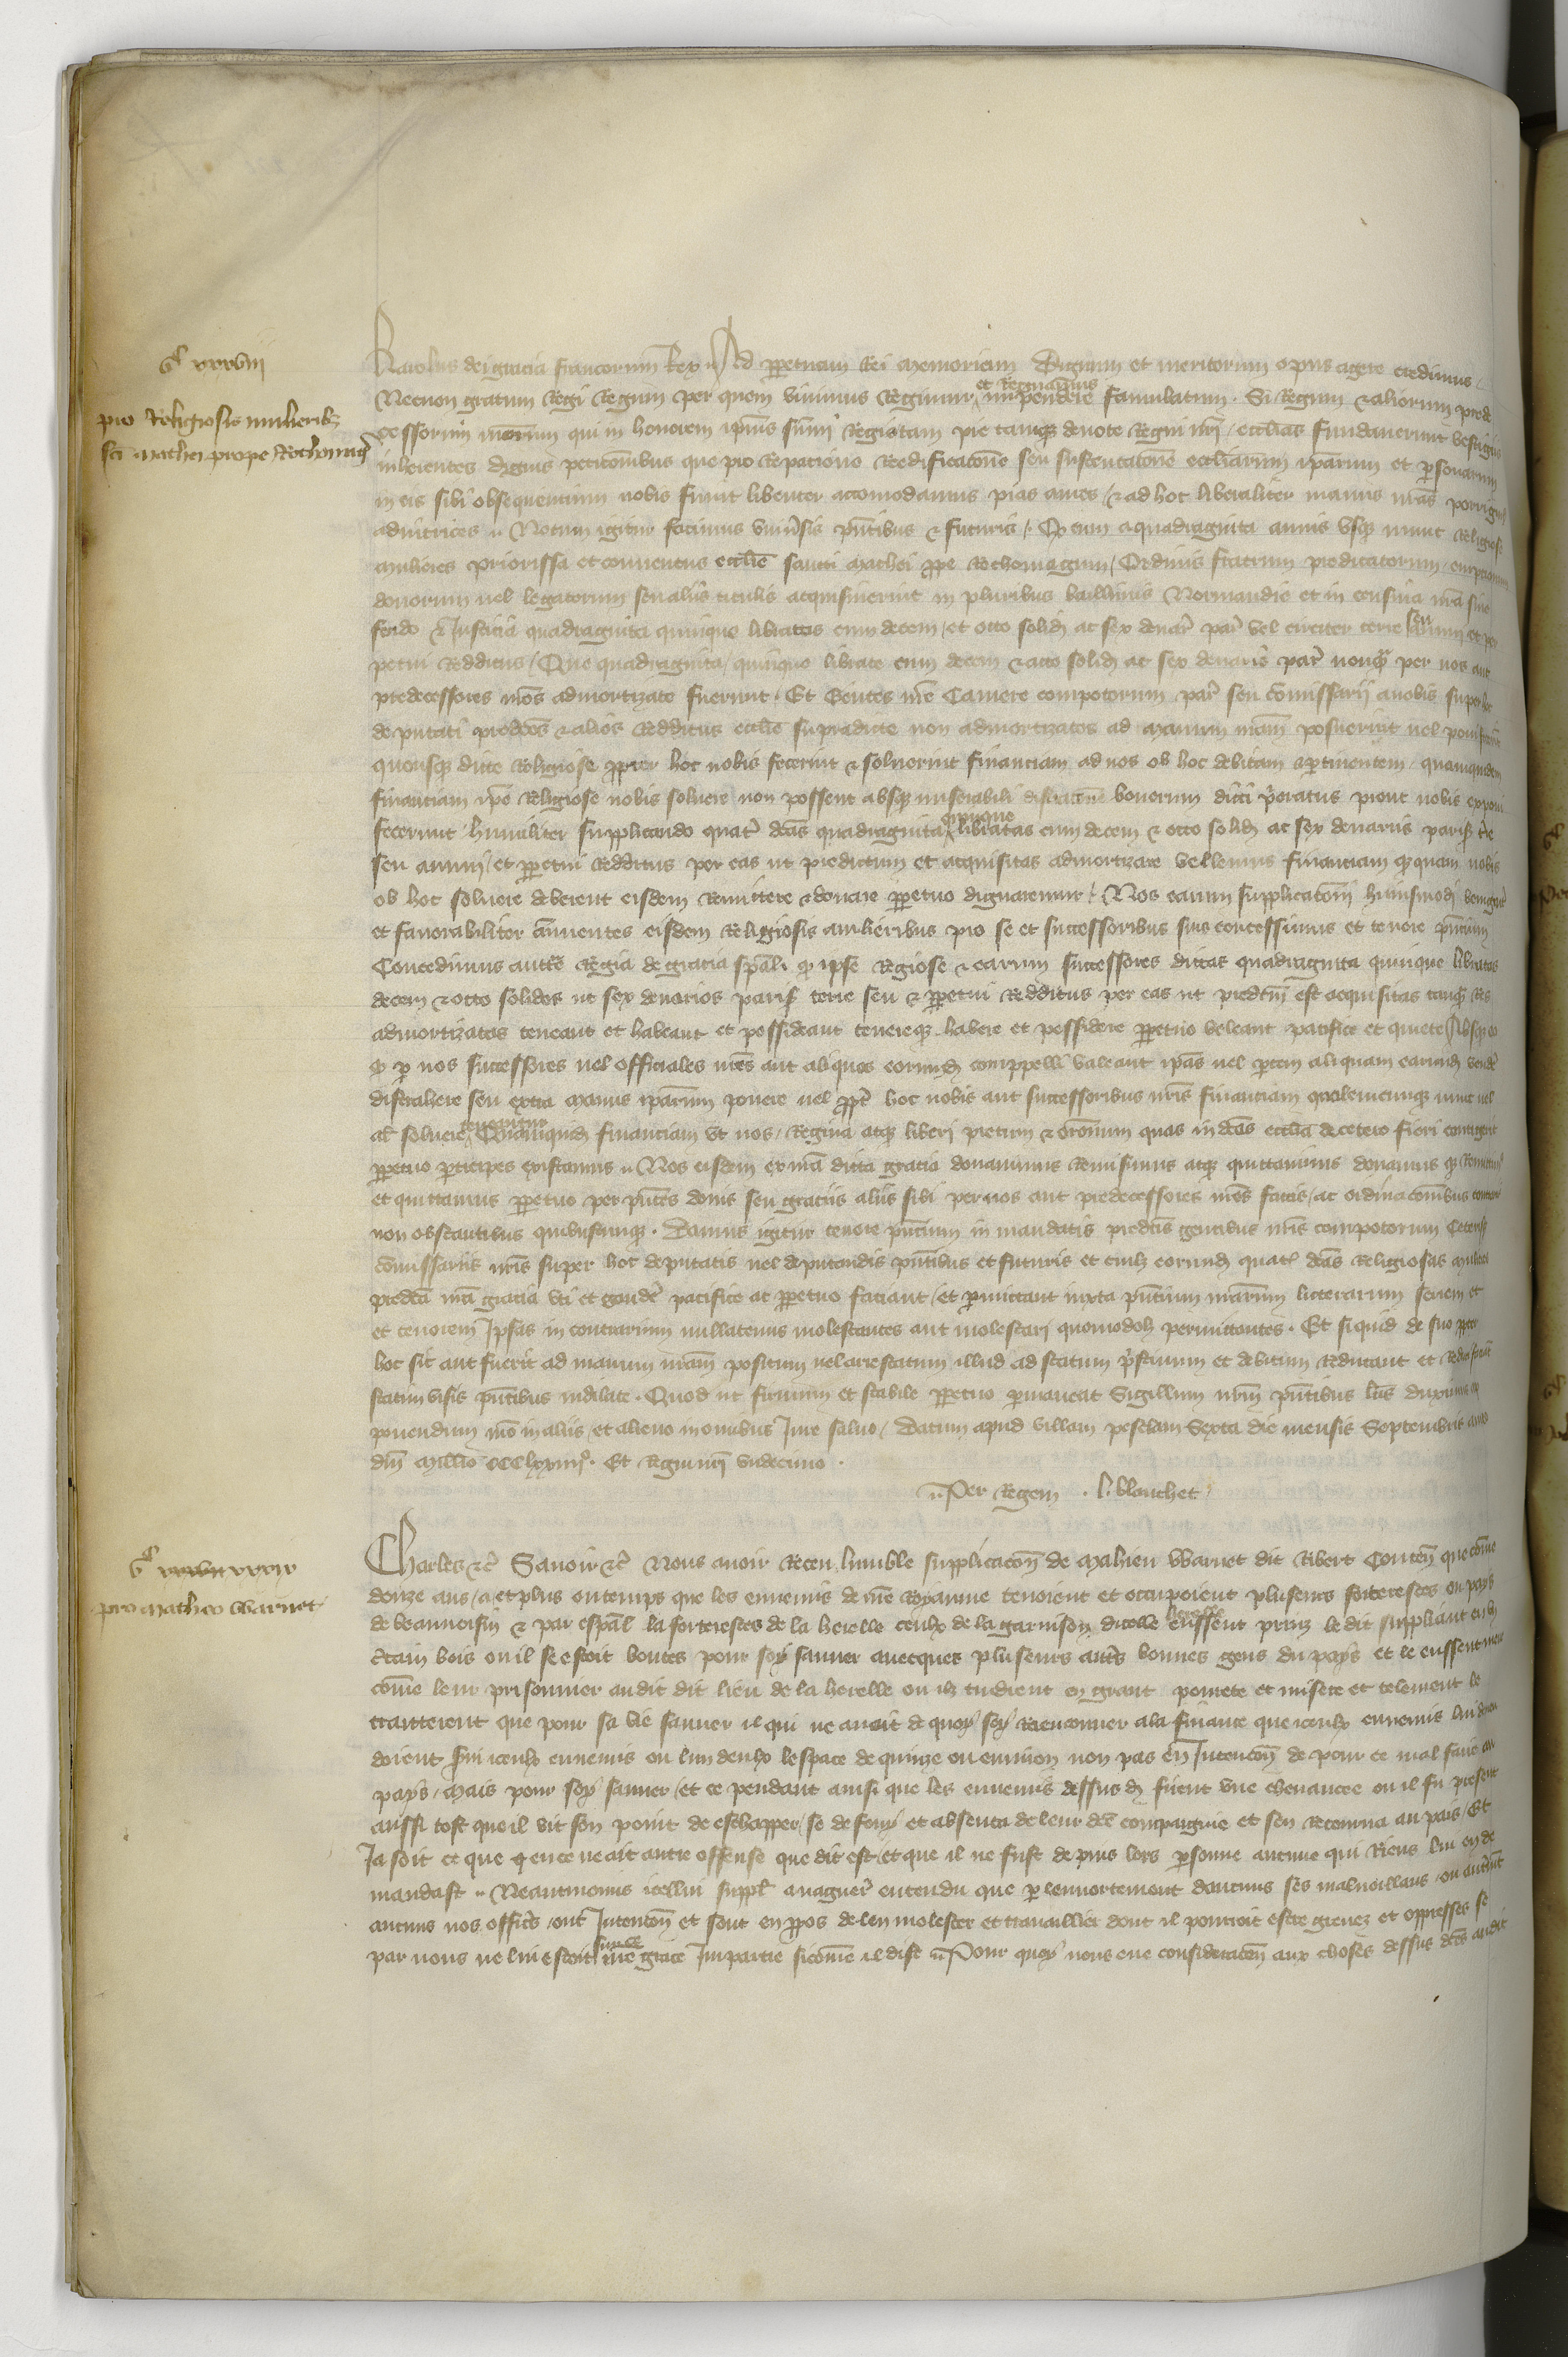 vᶜ xxxviij
pro Religiosis mulierib;
sc̄i mathei prope Rothomag̃
Karolus dei gracia francorum Rex Ad ppetuam Rei memoriam Dignum et meritorum opus agere credimus
Necnon gratum Regi Regum per quem vivimus Regimur et Regnamus impendere famulatum . Si Regum & aliorum prede
cessorum nr̄orum qui in honorem ip̄ius sum̄i Regis tam pie tamqȝ devote Regni nr̄i eccl̄ias fundaverunt vestigiis
inherentes dignis petic̄onibus que pro Reparacione Reedificac̄one seu sustentac̄one eccl̄iarum ip̄arum et p̱sonarum
in eis sibi obsequentium nobis fiunt libenter accomodamus pias aures / & ad hoc liberaliter manus nr̄as porrigim̄
adiutrices . Notum igitur facimus univ̄sis p̄ntibus & futuris / Q̄ cum a quadraginta annis vsqȝ nunc Religiose
mulieres priorissa et conventus eccl̄ie sancti Mathei p̱pe Rothomagum / Ordinis fratrum predicatorum / empcionum
donorum vel legatorum seu aliis titulis acquisiverint in pluribus baillivis Normandie et in censiva nr̄a sine
feodo & Justicia quadraginta quinque libratas cum decem / et octo solid̄ ac sex denar̄ par̄ vel circiter terre seu annui et per
petui Redditus / Que quadraginta / quinque librate cum decem & octo solid̄ ac sex denariis par̄ nonqȝ per nos aut
predecessores nr̄os admortizate fuerunt . Et Gentes nr̄e Camere compotorum par̄ seu com̄issarii a nobis super hoc
deputati predc̄os & alios Redditus eccl̄ie supradicte non admortizatos ad manum nr̄am posuerint vel poni fecerint
quousqȝ dicte Religiose propter hoc nobis fecerint & solverint financiam ad nos ob hoc debitam & p̱tinentem / quamquidem
financiam ip̄e Religiose nobis solvere non possent absqȝ miserabili distracc̄one bonorum dicti p̄oratus prout nobis exponi
fecerunt / humiliter supplicando quat̄ dc̄as quadraginta quinque libratas cum decem & octo solid̄ ac sex denariis paris̄ tr̄e
seu annui / et p̱petui Redditus per eas ut predictum et acquisitas admortizare vellemus financiam qȝ quam nobis
ob hoc solvere deberent eisdem Remittere & donare p̱petuo dignaremur / Nos earum supplicac̄oni huiusmodi benigne
et favorabiliter an̄uentes eisdem Religiosis mulieribus pro se et successoribus suis concessimus et tenore p̄ntium
Concedimus auct̄e Regia de gracia sp̄ali q̄ ipse Regiose & earum successores dictas quadraginta quinque libratas
decem & octo solidos ut sex denarios paris̄ terre seu & p̱petui Redditus per eas ut predc̄m est acquisitas tanqȝ Res
admortizatas teneant et habeant et possideant tenereqȝ habere et possidere p̱petuo valeant pacifice et quiete / Absqȝ eo
q̄ p̱ nos successores vel officiales nr̄os aut aliquos eorund̄ compelli valeant ip̄as vel p̱tem aliquam earund̄ vend̄e
distrahere seu extra manus ip̄arum ponere vel p̱pt̄ hoc nobis aut successoribus nr̄is financiam qualemcunqȝ nunc vel
al̄ solvere teneantur Quamquid̄ financiam ut nos / Regina atqȝ liberi precum & or̄onum quas in dc̄a eccl̄ia decetero fieri contigerit
p̱petuo p̱ticipes existamus . Nos eisdem ex nr̄a dicta gracia donavimus Remisimus atqȝ quittavimus donamus qȝ Remittim̄
et quittamus p̱petuo per p̄ntes donis seu graciis aliis sibi per nos aut predecessores nr̄os factis / ac ordinac̄onibus contrariis
non obstantibus quibuscunqȝ . Damus igitur tenore p̄ntium in mandatis predc̄is gentibus nr̄is compotorum Ceterisqȝ
com̄issariis nr̄is super hoc deputatis vel deputandis p̄ntibus et futuris et cuil; eorund̄ quat̄ dc̄as Religiosas mulieres
predc̄a nr̄a gracia uti et gaud̄e pacifice ac p̱petuo faciant / et p̱mittant iuxta p̄ntium nr̄arum litterarum seriem et
et tenorem Ipsas in contrarium nullatenus molestantes aut molestari quomodol; permittentes . Et si quid de suo p̱pter
hoc sit aut fuerit ad manum nr̄am positum vel arrestatum illud ad statum p̄stinum et debitum Reducant et Reduci faciāt
statim visis p̄ntibus indilate . Quod ut firmum et stabile p̱petuo p̱maneat Sigillum nr̄m p̄ntibus lr̄is duximus ap
ponendum nr̄o in aliis / et alieno in omnibus Iure salvo / Datum apud villam pesclam Sexta die mensis Septembris anno
dn̄i Mill̄io CCCLxxiiijº . Et Regni nr̄i undecimo .
Per Regem . L. blanchet
vᶜ xxxix
pro matheo Warnet
Charles &c̄ Savoir &c̄ Nous avoir Receu lumble supplicac̄on de Mahieu Warnet dit Ribert Conten̄ que com̄e
douze ans / a et plus ou temps que les ennemis de nr̄e Royaume tenoient et occupoient pluseurs forteresses ou pays
de beauvoisin & par esp̄al la forteresces de la herelle ceulx de la garnison dicelle herelle eussent prins le dit suppliant en un
c̄tain bois ou il se estoit boutes pour soy sauver avecques pluseurs autr̄s bonnes gens du pays et le eussent mene
com̄e leur prisonnier au dit dit lieu de la herelle ou ilz tindrent en grant povrete et misere et telement le
traitterent que pour sa vie sauver il qui ne avoit de quoy soy Raenconner a la finance que iceulx ennemis lui deman
doient servi iceulx ennemis ou lun deulx lespace de quinze ou environ non pas en Intenc̄on de pour ce mal faire au
pays / Mais pour soy sauver / et ce pendant ainsi que les ennemis dessus d̄ firent une chevaucee ou il fu present
aussi tost que il vit son point de eschapper / se de fouy et absenta de leur dc̄e compaignie et sen Retourna au pais / Et
Ja soit ce que q̄ en ce ne ait autre offense que dit est / et que il ne fust de puis lors p̱sonne aucune qui Riens lui en de
mandast . Neantmoins icellui suppl̄ a naguer̄ entendu que p̱ lennortement daucuns ses malveillans ou autrem̄t
aucuns nos offic̄s ont Intenc̄on et sont en p̱pos de len molester et travaillier dont il pourroit estre grevez et oppresses se
par nous ne lui estoit sur ce nr̄e grace Impartie si com̄e il dist Pour quoy nous eue considerac̄on aux choses dessus dc̄es au dit